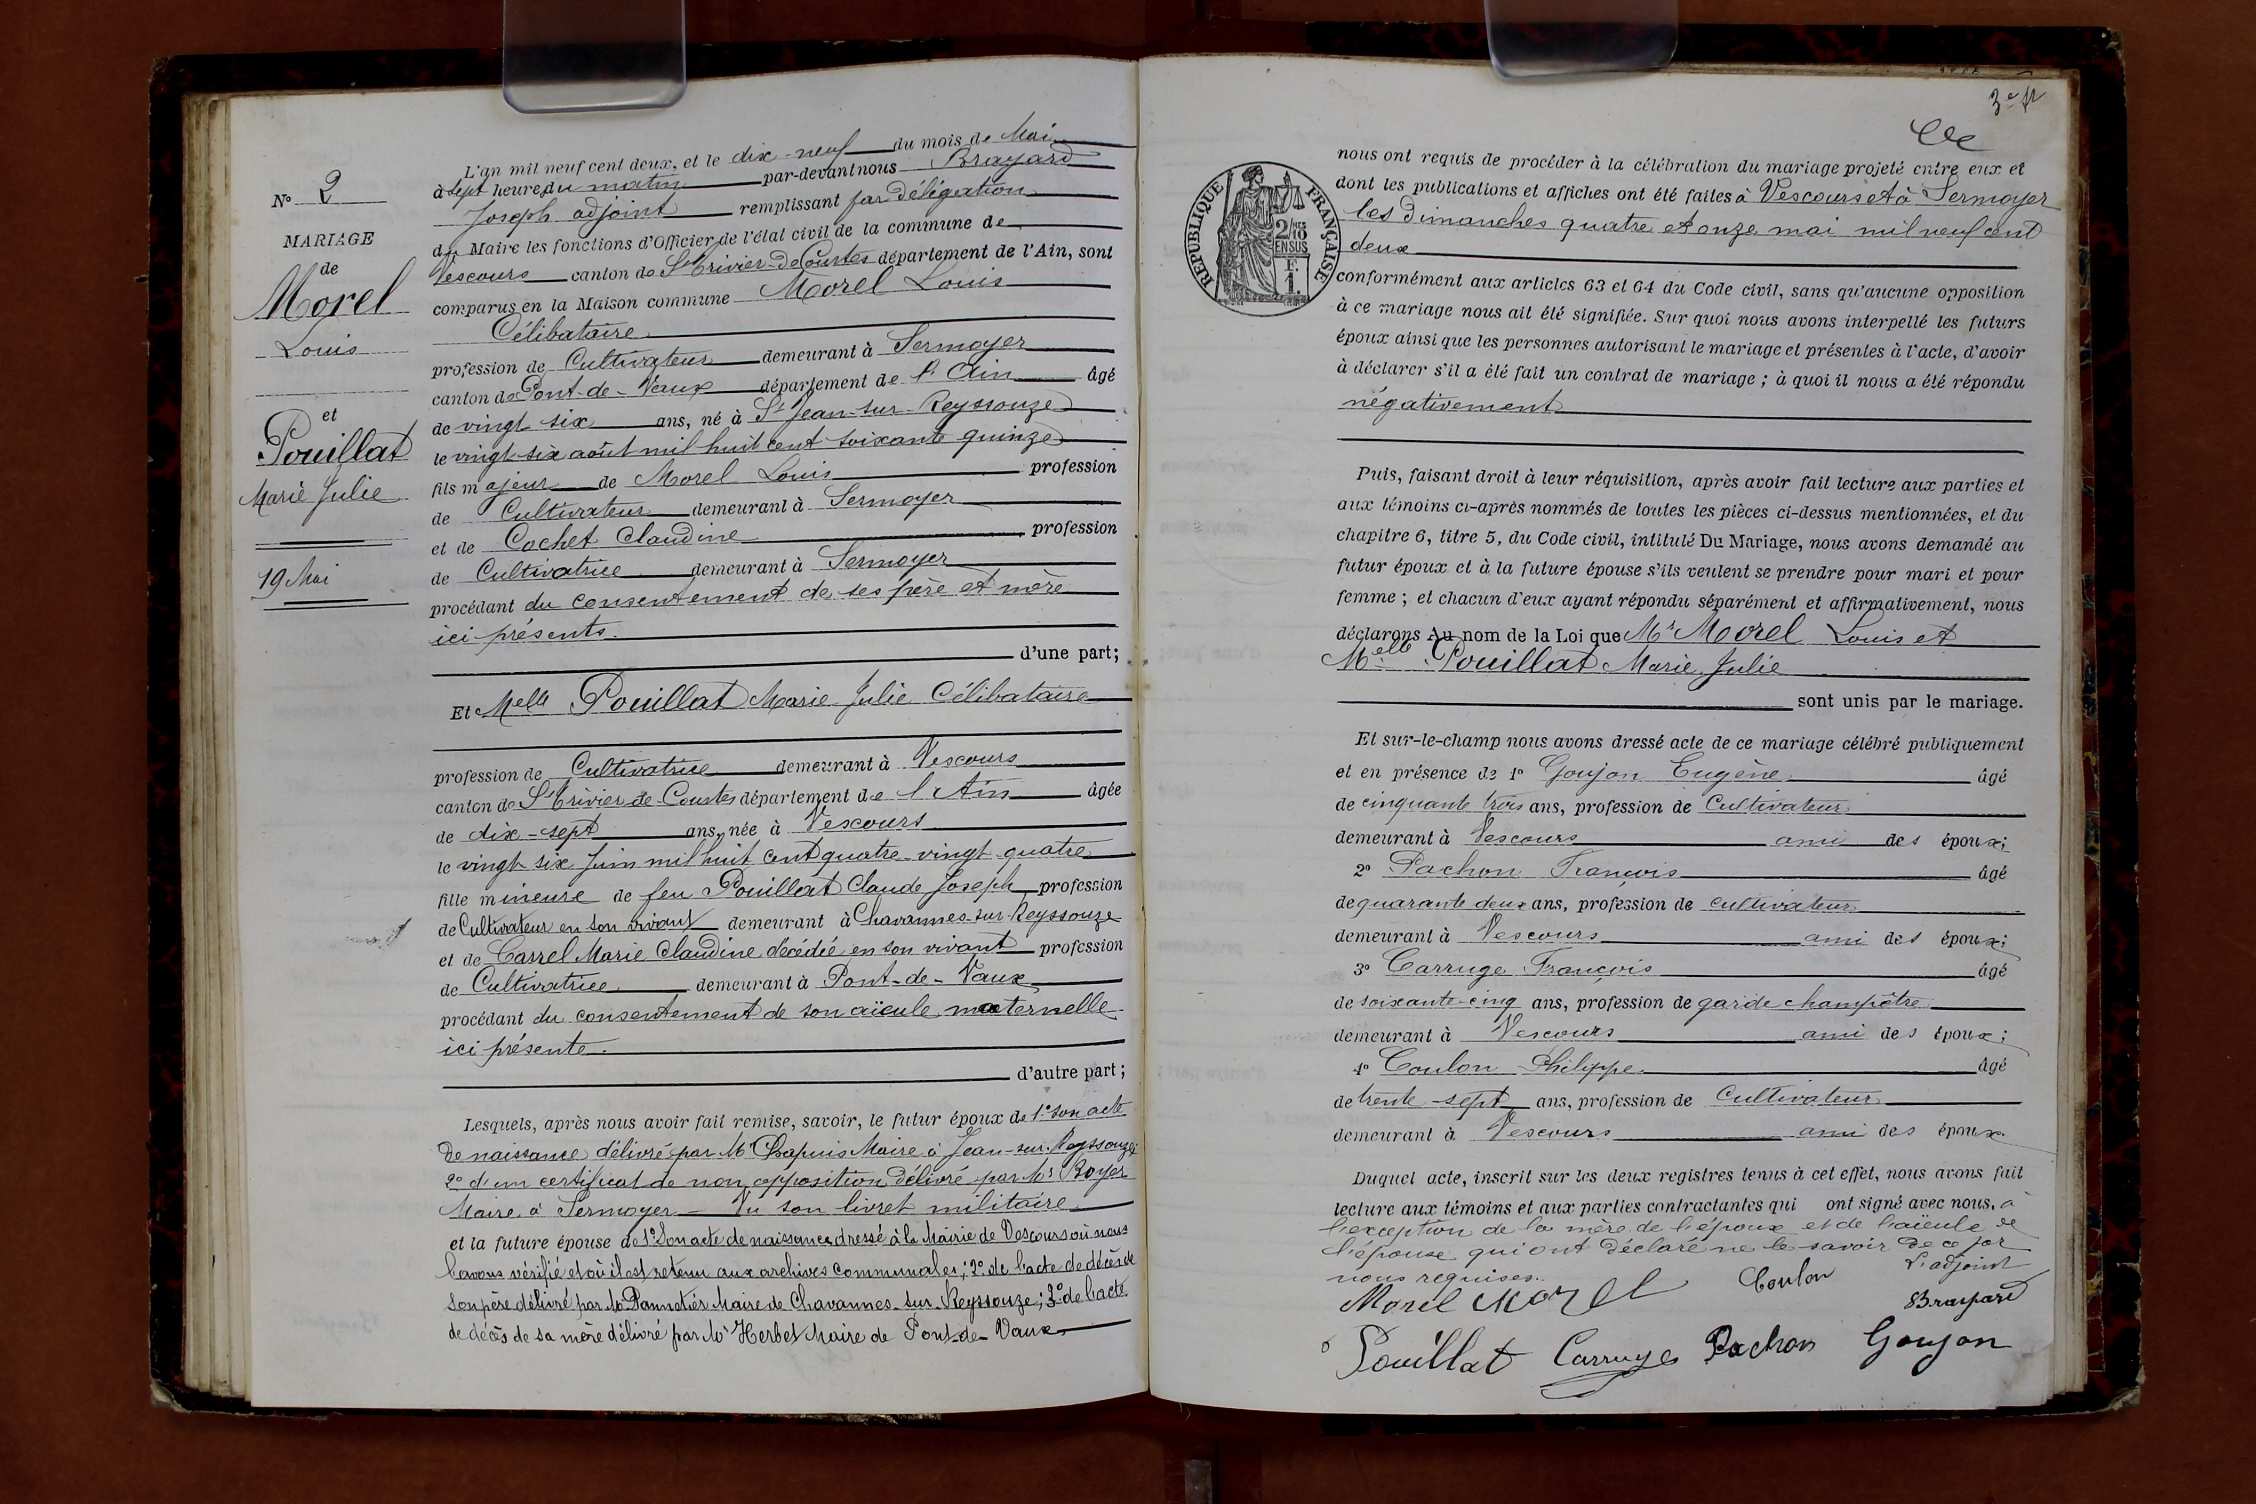 N° 2
MARIAGE
de
Morel
Louis
et
Pouillat
Marie Julie
19 Mai
L'an mil neuf cent deux, et le dix-neuf du mois de Mai
à sept heures du matin par-devant nous Brayard
Joseph adjoint remplissant par délégation
du Maire les fonctions d'Officier de l'état civil de la commune de
Vescours canton de St Trivier-de-Courtes département de l'Ain, sont
comparus en la Maison commune Morel Louis
Célibataire
profession de Cultivateur demeurant à Sermoyer
canton de Pont-de-Vaux département de l'Ain âgé
de vingt six ans, né à St Jean-sur-Reyssouze
le vingt-six août mil huit cent soixante quinze
fils majeur de Morel Louis profession
de Cultivateur demeurant à Sermoyer
et de Cochet Claudine profession
de Cultivatrice demeurant à Sermoyer
procédant du consentement de ses père et mère
ici présents.
d'une part;
Et Melle Pouillat Marie Julie Célibataire
profession de Cultivatrice demeurant à Vescours
canton de St Trivier-de-Courtes département de l'Ain âgée
de dix-sept ans, née à Vescours
le vingt six Juin mil huit cent quatre-vingt quatre
fille mineure de feu Pouillat Claude Joseph profession
de Cultivateur en son vivant demeurant à Chavannes-sur-Reyssouze
et de Carrel Marie Claudine décédée en son vivant profession
de Cultivatrice demeurant à Pont-de-Vaux
procédant du consentement de son aïeule maternelle
ici présente.
d'autre part;
Lesquels, après nous avoir fait remise, savoir, le futur époux de 1° son acte
de naissance délivré par Mr Chapuis Maire à Jean-sur-Reyssouze
2° d'un certificat de non opposition délivré par Mr Royer
Maire à Sermoyer - Vu son livret militaire
et la future épouse de 1° Son acte de naissance dressé à la Mairie de Vescours où nous
l'avons vérifié et où il est retenu aux archives communales; 2° de l'acte de décès de
Son père délivré par Mr Pannetier Maire de Chavannes-sur-Reyssouze; 3° de l'acte
de décès de sa mère délivré par Mr Herbet Maire de Pont-de-Vaux
3e
RÉPUBLIQUE FRANÇAISE
2/10 EN SUS
F. 1.
nous ont requis de procéder à la célébration du mariage projeté entre eux et
dont les publications et affiches ont été faites à Vescours et à Sermoyer
les Dimanches quatre et onze mai mil neuf cent
deux
conformément aux articles 63 et 64 du Code civil, sans qu'aucune opposition
à ce mariage nous ait été signifiée. Sur quoi nous avons interpellé les futurs
époux ainsi que les personnes autorisant le mariage et présentes à l'acte, d'avoir
à déclarer s'il a été fait un contrat de mariage; à quoi il nous a été répondu
négativement
Puis, faisant droit à leur réquisition, après avoir fait lecture aux parties et
aux témoins ci-après nommés de toutes les pièces ci-dessus mentionnées, et du
chapitre 6, titre 5, du Code civil, intitulé Du Mariage, nous avons demandé au
futur époux et à la future épouse s'ils veulent se prendre pour mari et pour
femme; et chacun d'eux ayant répondu séparément et affirmativement, nous
déclarons Au nom de la Loi que Mr Morel Louis et
Melle Pouillat Marie Julie
sont unis par le mariage.
Et sur-le-champ nous avons dressé acte de ce mariage célébré publiquement
et en présence de 1° Goujon Eugène âgé
de cinquante trois ans, profession de Cultivateur
demeurant à Vescours ami des époux;
2° Pachon François âgé
de quarante deux ans, profession de cultivateur
demeurant à Vescours ami des époux;
3° Carruge François âgé
de soixante-cinq ans, profession de garde champêtre
demeurant à Vescours ami des époux;
4° Coulon Philippe âgé
de trente-sept ans, profession de Cultivateur
demeurant à Vescours ami des époux.
Duquel acte, inscrit sur les deux registres tenus à cet effet, nous avons fait
lecture aux témoins et aux parties contractantes qui ont signé avec nous, à
l'exception de la mère de l'époux et de l'aïeule de
l'épouse qui ont déclaré ne le savoir de ce par
nous requises.
L'adjoint
Morel Morel Coulon Brayard
Pouillat Carruge Pachon Goujon